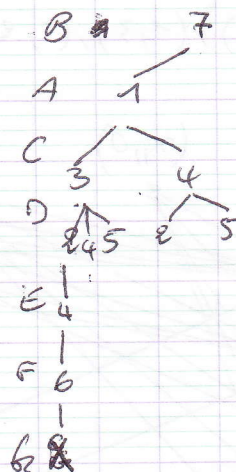 B 7
A 1
C 3 4
D 2 4 5 2 5
E 4
F 6
G